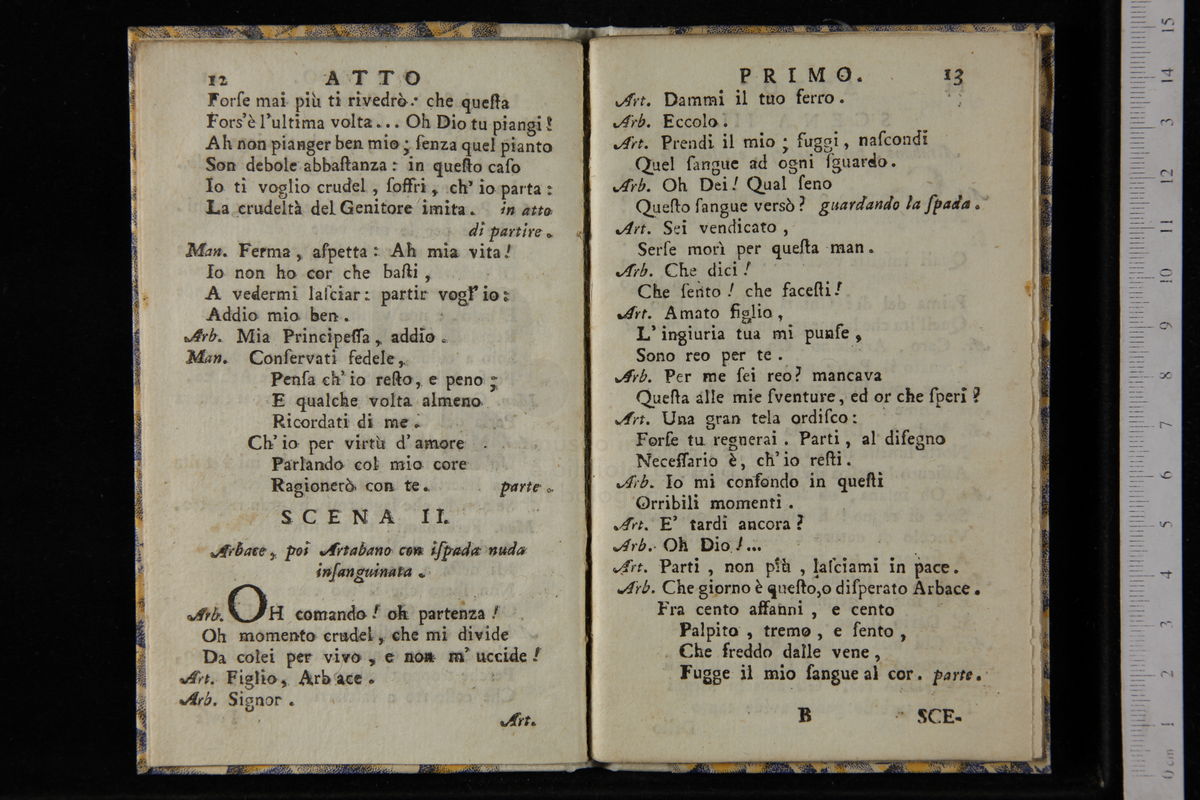 12 ATTO
Forſe mai più ti rivedrò: che queſta
Fors'è l'ultima volta... Oh Dio tu piangi!
Ah non pianger ben mio; ſenza quel pianto
Son debole abbaſtanza: in queſto caſo
Io ti voglio crudel, ſoffri, ch' io parta:
La crudeltà del Genitore imita. in atto
di partire.
Man. Ferma, aſpetta: Ah mia vita!
Io non ho cor che baſti,
A vedermi laſciar: partir vogl' io:
Addio mio ben.
Arb. Mia Principeſſa, addio.
Man. Conſervati fedele,
Penſa ch' io reſto, e peno;
E qualche volta almeno
Ricordati di me.
Ch' io per virtù d' amore
Parlando col mio core
Ragionerò con te. parte.
SCENA II.
Arbace, poi Artabano con iſpada nuda
inſanguinata.
Arb. OH comando! oh partenza!
Oh momento crudel, che mi divide
Da colei per vivo, e non m' uccide!
Art. Figlio, Arbace.
Arb. Signor.
Art.
PRIMO. 13
Art. Dammi il tuo ferro.
Arb. Eccolo.
Art. Prendi il mio; fuggi, naſcondi
Quel ſangue ad ogni ſguardo.
Arb. Oh Dei! Qual ſeno
Queſto ſangue versò? guardando la ſpada.
Art. Sei vendicato,
Serſe morì per queſta man.
Arb. Che dici!
Che ſento! che faceſti!
Art. Amato figlio,
L' ingiuria tua mi punſe,
Sono reo per te.
Arb. Per me ſei reo? mancava
Queſta alle mie ſventure, ed or che ſperi?
Art. Una gran tela ordiſco:
Forſe tu regnerai. Parti, al diſegno
Neceſſario è, ch' io reſti.
Arb. Io mi confondo in queſti
Orribili momenti.
Art. E' tardi ancora?
Arb. Oh Dio!...
Art. Parti, non più, laſciami in pace.
Arb. Che giorno è queſto, o diſperato Arbace.
Fra cento affanni, e cento
Palpito, tremo, e ſento,
Che freddo dalle vene,
Fugge il mio ſangue al cor. parte.
B SCE-
0 cm 1 2 3 4 5 6 7 8 9 10 11 12 3 14 15